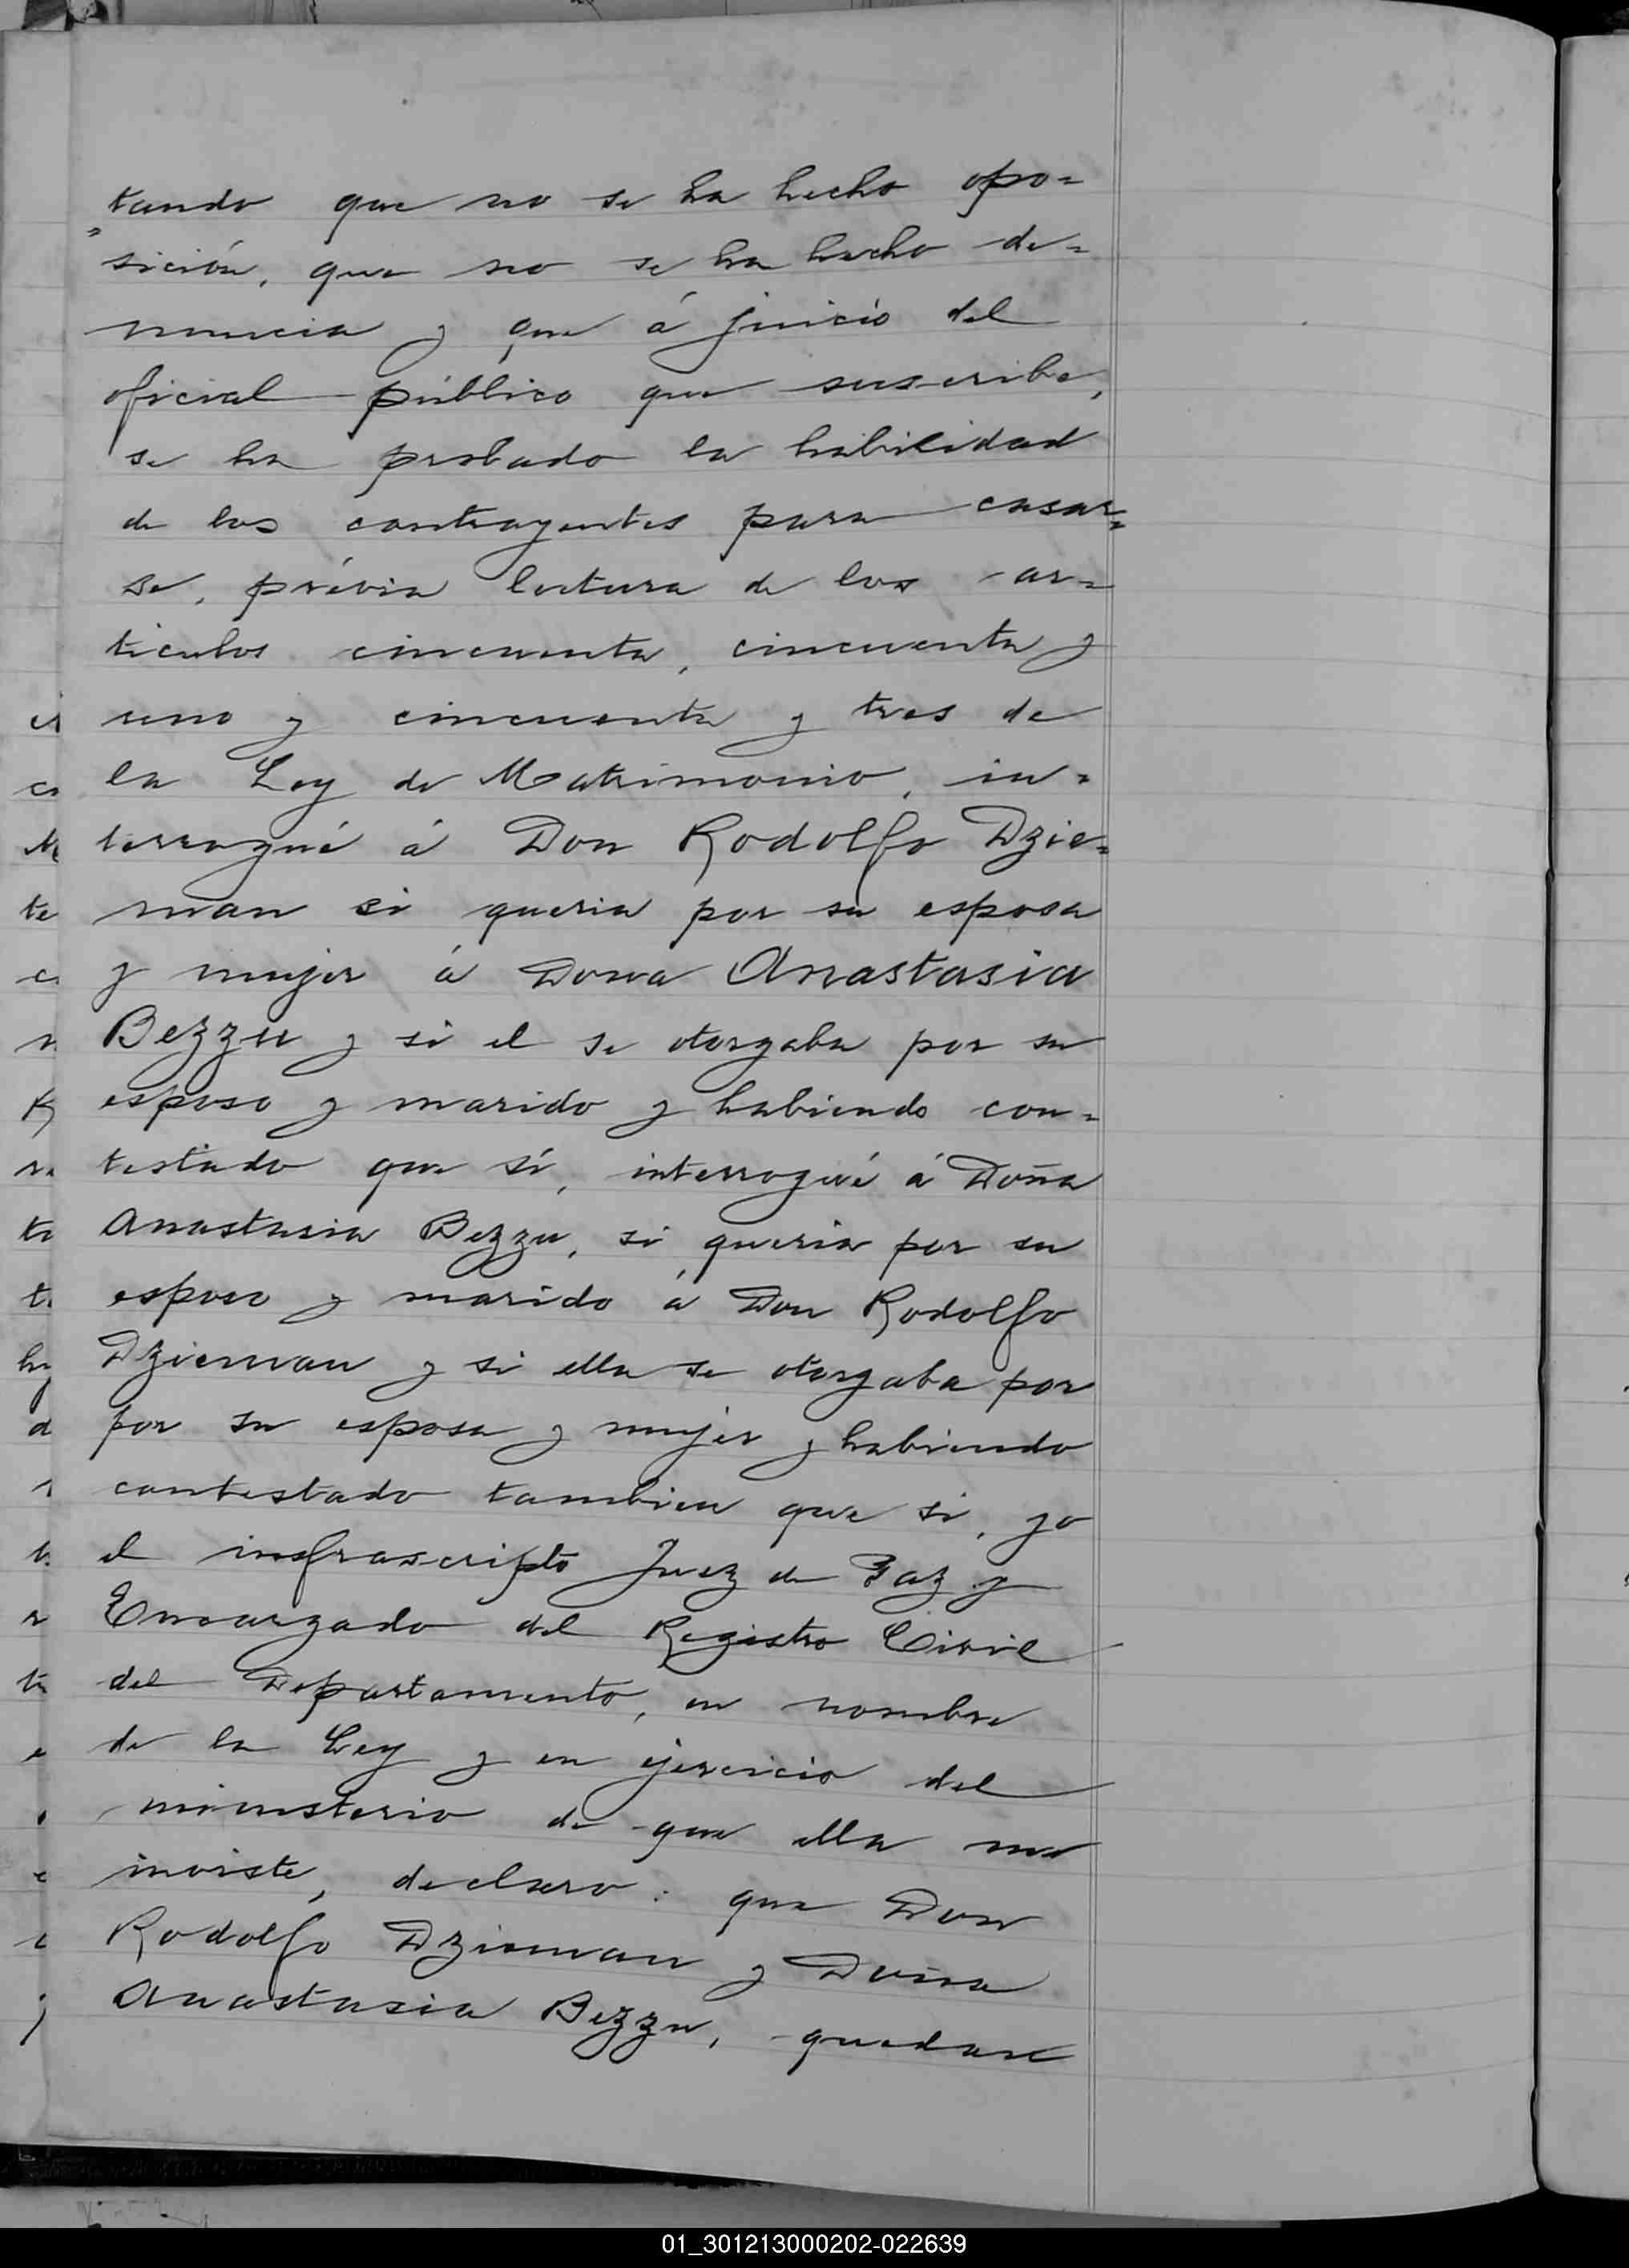 tando que no se ha hecho opo=
sición, que no se ha hecho de=
nuncia y que á juicio del
oficial público que suscribe,
se ha probado la habilidad
de los contrayentes para casar=
se, prévia lectura de los ar=
tículos cincuenta, cincuenta y
uno y cincuenta y tres de
la Ley de Matrimonio, in=
terrogué á Don Rodolfo Dzie=
man si queria por su esposa
y mujer á Dona Anastasia
Bezzu y si el se otorgaba por su
esposo y marido y habiendo con=
testado que sí, interrogué á Doña
Anastasia Bezzu, si queria por su
esposo y marido á Don Rodolfo
Dzieman y si ella se otorgaba por
por su esposa y mujer y habiendo
contestado tambien que si, yo
el infrascripto Juez de Paz y
Encargado del Registro Civil
del Departamento, en nombre
de la Ley y en ejercicio del
ministerio de que ella me
inviste, declaro: que Don
Rodolfo Dzieman y Doña
Anastasia Bezzu, quedan
01_301213000202-022639